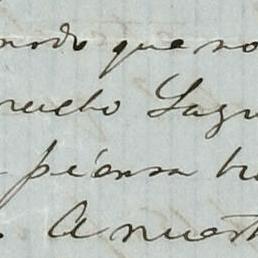 modo que no
mucho Lagu
piensa
. A nuest